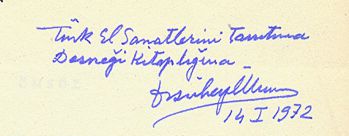 Türk El Sanatlerini Tanıtma
Derneği Kitaplığına
14 I 1972